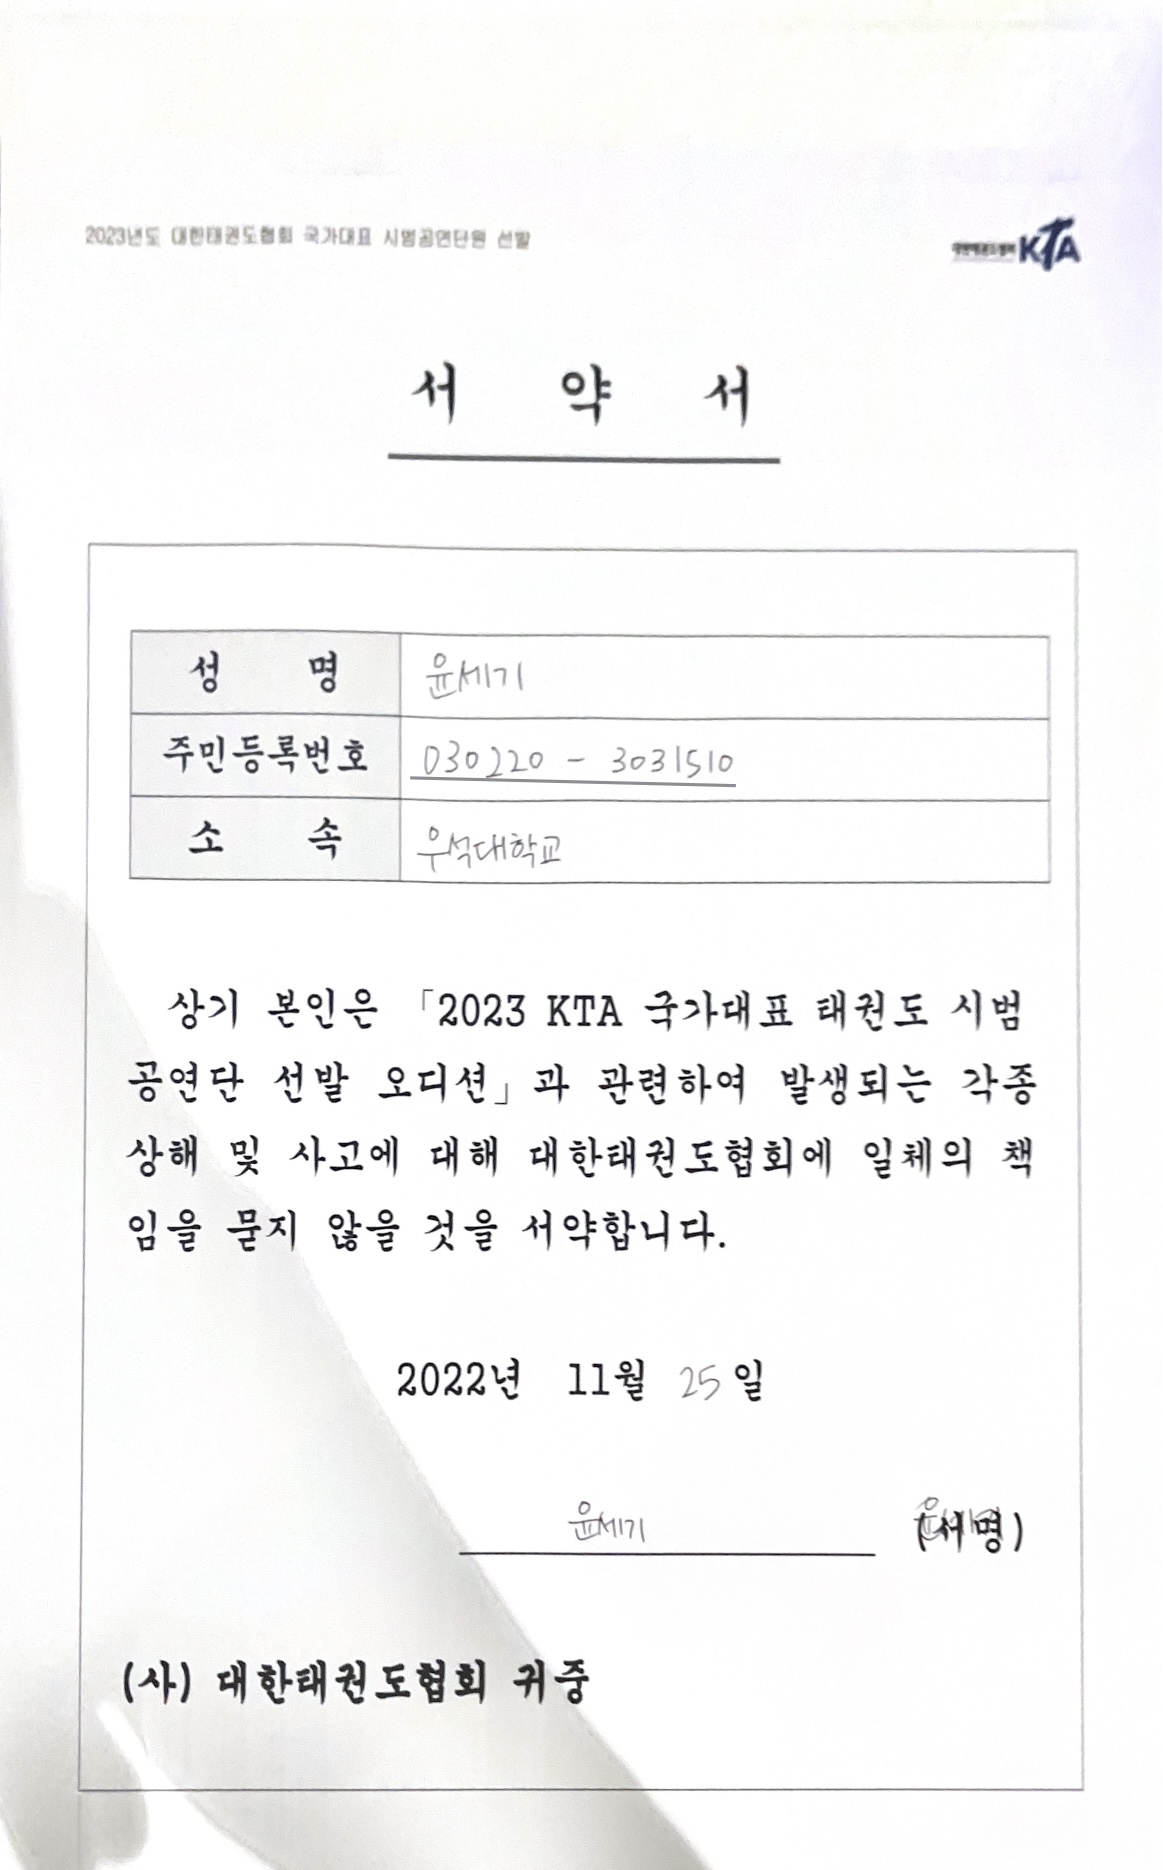 2023년도 대한태권도협회 국가대표 시범공연단원 선발
대한태권도협회 KTA
서 약 서
성 명 윤세기
주민등록번호 030220 - 3031510
소 속 우석대학교
상기 본인은 「2023 KTA 국가대표 태권도 시범
공연단 선발 오디션」과 관련하여 발생되는 각종
상해 및 사고에 대해 대한태권도협회에 일체의 책
임을 묻지 않을 것을 서약합니다.
2022년 11월 25일
윤세기 (서명) 윤세기
(사) 대한태권도협회 귀중